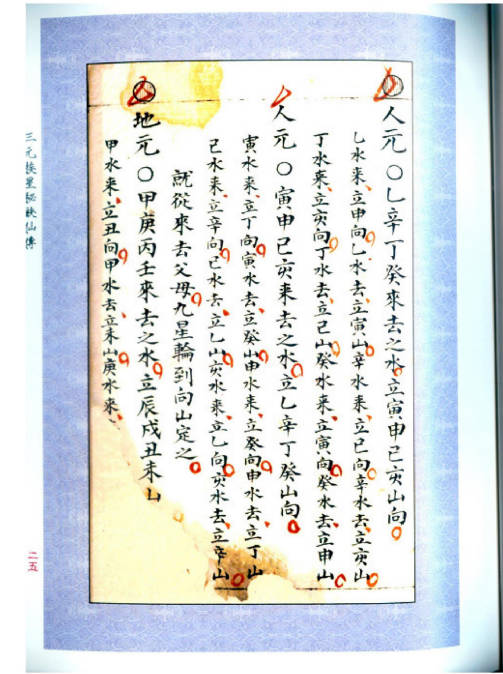 人元〇乙辛丁癸來去之水立寅申巳亥山向
乙水來立申向乙水去立寅山辛水來立巳向辛水去立亥山
丁水來立亥向丁水去立巳山癸水來立寅向癸水去立申山
人元〇寅申巳亥來去之水立乙辛丁癸山向
寅水來立丁向寅水去立癸山申水來立癸向申水去立丁山
巳水來立辛向巳水去立乙山亥水來立乙向亥水去立辛山
就從來去父母九星輪到向山定之
地元〇甲庚丙壬來去之水立辰戌丑未山
甲水來立丑向甲水去立未山庚水來
三元挨星秘訣仙傳
二五